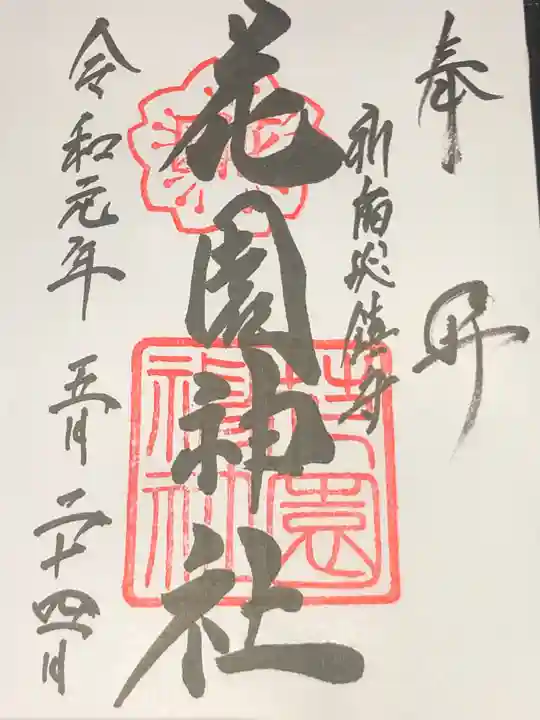 奉拝
新宿総鎮守
花園神社
花園神社
令和元年 五月 二十四日